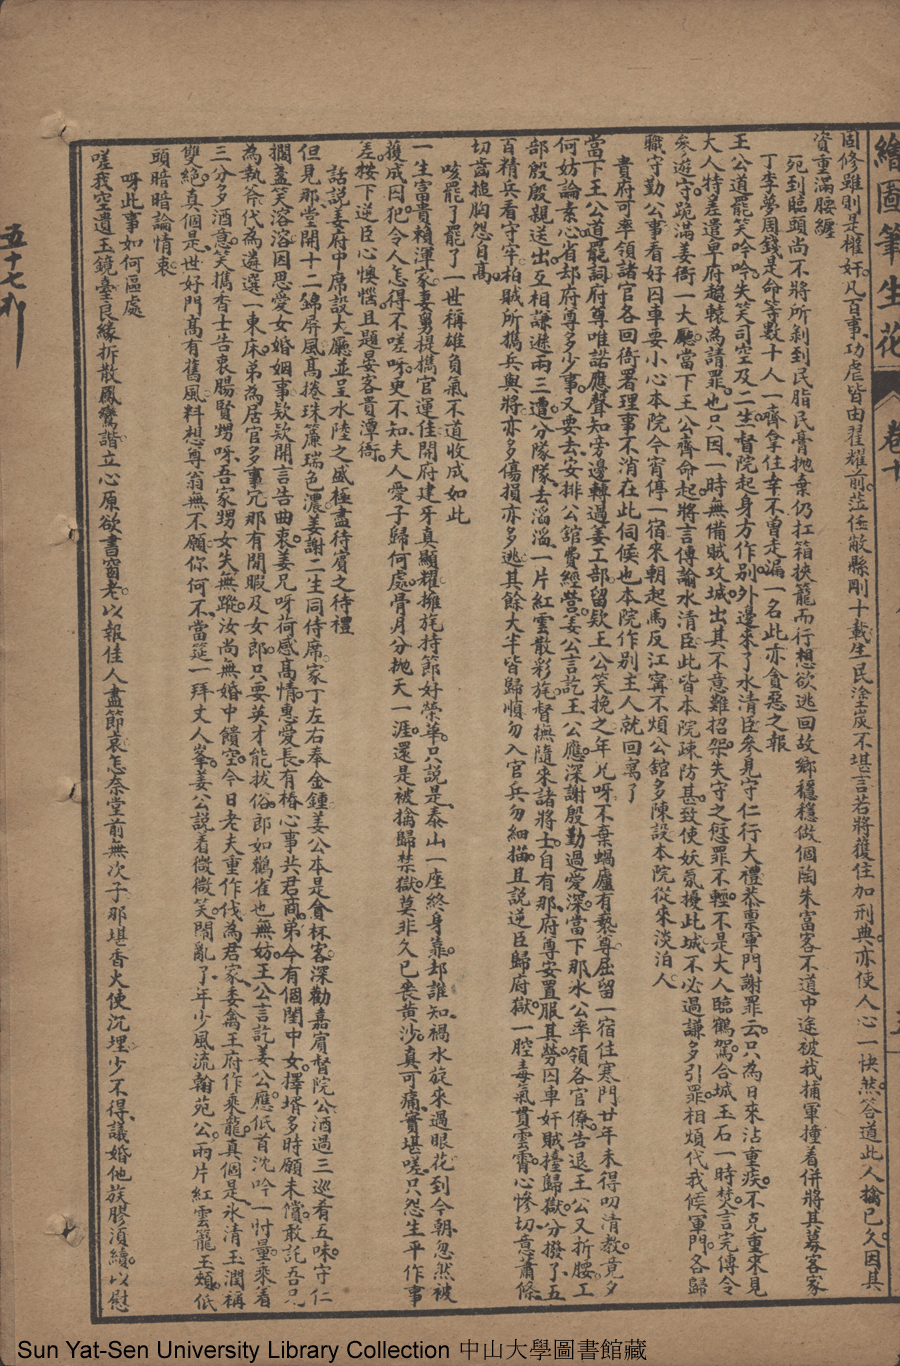 繪圖筆生花 卷十
固修雖則是權奸凡百事功虐皆由翟耀前蒞任敝縣剛十載生民塗炭不堪言若將獲住加刑典亦使人心一快然答道此人擒已久因其
資重滿腰纏
宛到臨頭尚不將所剝到民脂民膏拋棄仍扛箱挾籠而行想欲逃回故鄉穩穩做個陶朱富客不道中途被我捕軍撞着併將其幕客家
丁李夢周錢是命等數十人一齊拿住幸不曾走漏一名此亦貪惡之報
王公道罷笑吟吟失笑司空及二生督院起身方作别外邊來了水清臣叅見守仁行大禮恭禀軍門謝罪云只為日來沾重疾不克重來見
大人特差遣卑府趨轅為請罪也只因一時無備賊攻城出其不意難招架失守之愆罪不輕不是大人臨鶴駕合城玉石一時焚言完傳令
叅遊守跪滿姜衙一大廳當下王公齊命起將言傳諭水清臣此皆本院疎防甚致使妖氛擾此城不必過謙多引罪相煩代我候軍門各歸
職守勤公事看好囚車要小心本院今宵停一宿來朝起馬反江寗不煩公舘多陳設本院從來淡泊人
貴府可率領諸官各回衙署理事不消在此伺候也本院作别主人就回寓了
當下王公道罷詞府尊唯諾應聲知旁邊轉過姜工部留欵王公笑挽之年兄呀不棄蝸廬有褻尊屈留一宿住寒門廿年未得叨清教竟夕
何妨論素心省却府尊多少事又要去安排公舘費經營姜公言訖王公應深謝殷勤過愛深當下那水公率領各官僚告退王公又折腰工
部殷殷親送出互相謙遜兩三遭分隊隊去滔滔一片紅雲散彩旄督撫隨來諸將士自有那府尊安置服其勞囚車奸賊擡歸獄分撥了五
百精兵看守牢柏賊所擕兵與將亦多傷損亦多逃其餘大半皆歸順勿入官兵勿細描且説逆臣歸府獄一腔毒氣貫雲霄心慘切意蕭條
切齒搥胸怨自高
唆罷了罷了一世稱雄負氣不道收成如此
一生富貴賴渾家妻舅提擕官運佳開府建牙真顯耀擁旄持節好榮華只說是泰山一座終身靠却誰知禍水旋來過眼花到今朝忽然被
獲成囚犯令人怎得不嗟呀更不知夫人愛子歸何處骨月分拋天一涯還是被擒歸禁獄莫非久已喪黃沙真可痛實堪嗟只怨生平作事
差按下逆臣心懊惱且題晏客貴潭衙
話説姜府中席設大廳並呈水陸之盛極盡待賓之待禮
但見那堂開十二錦屏風高捲珠簾瑞色濃姜謝二生同侍席家丁左右奉金鍾姜公本是貪杯客深勸嘉賓督院公酒過三巡肴五味守仁
擱盞笑溶溶因思愛女婚姻事欵欵開言告曲衷姜兄呀荷感高情惠愛長有樁心事共君商弟今有個閨中女擇壻多時願未償敢託吾兄
為執斧代為遴選一東床弟為居官多事冗那有閒暇及女郎只要英才能拔俗郎如鸛雀也無妨王公言訖姜公應低首沈吟一忖量乘着
三分多酒意笑擕香士告衷腸賢甥呀吾家甥女失無蹤汝尚無婚中饋空今日老夫重作伐為君家委禽王府作乘龍真個是氷清玉潤稱
雙絶真個是世好門高有舊風料想尊翁無不願你何不當筵一拜丈人峯姜公説着微微笑鬧亂了年少風流翰苑公兩片紅雲籠玉頰低
頭暗暗論情衷
呀此事如何區處
嗟我空遺玉鏡臺良緣拆散鳳鸞諧立心原欲書窗老以報佳人盡節哀怎奈堂前無次子那堪香火使沉埋少不得議婚他族膠須續以慰
Sun Yat-Sen University Library Collection 中山大學圖書館藏